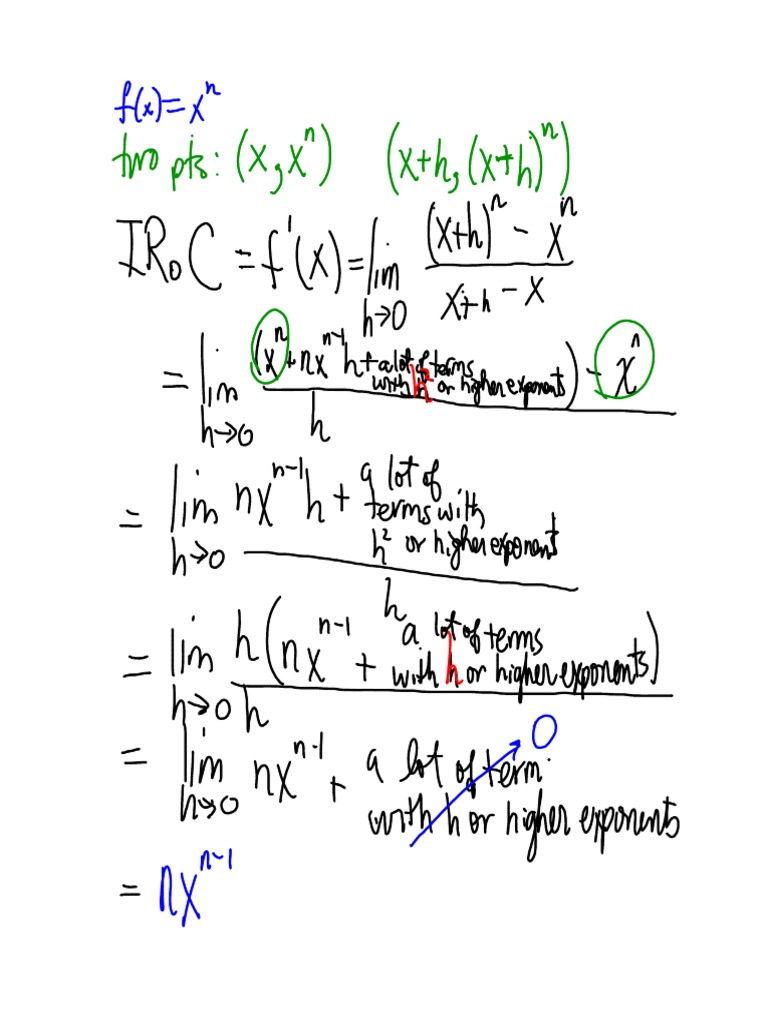 f(x) = xⁿ
two pts: (x, xⁿ) (x+h, (x+h)ⁿ)
IRoC = f'(x) = lim h→0 ((x+h)ⁿ - xⁿ) / (x+h - x)
= lim h→0 ((xⁿ + nxⁿ⁻¹h + a lot of terms with h² or higher exponent) - xⁿ) / h
= lim h→0 (nxⁿ⁻¹h + a lot of terms with h² or higher exponent) / h
= lim h→0 h(nxⁿ⁻¹ + a lot of terms with h or higher exponents) / h
= lim h→0 nxⁿ⁻¹ + a lot of term with h or higher exponents 0
= nxⁿ⁻¹